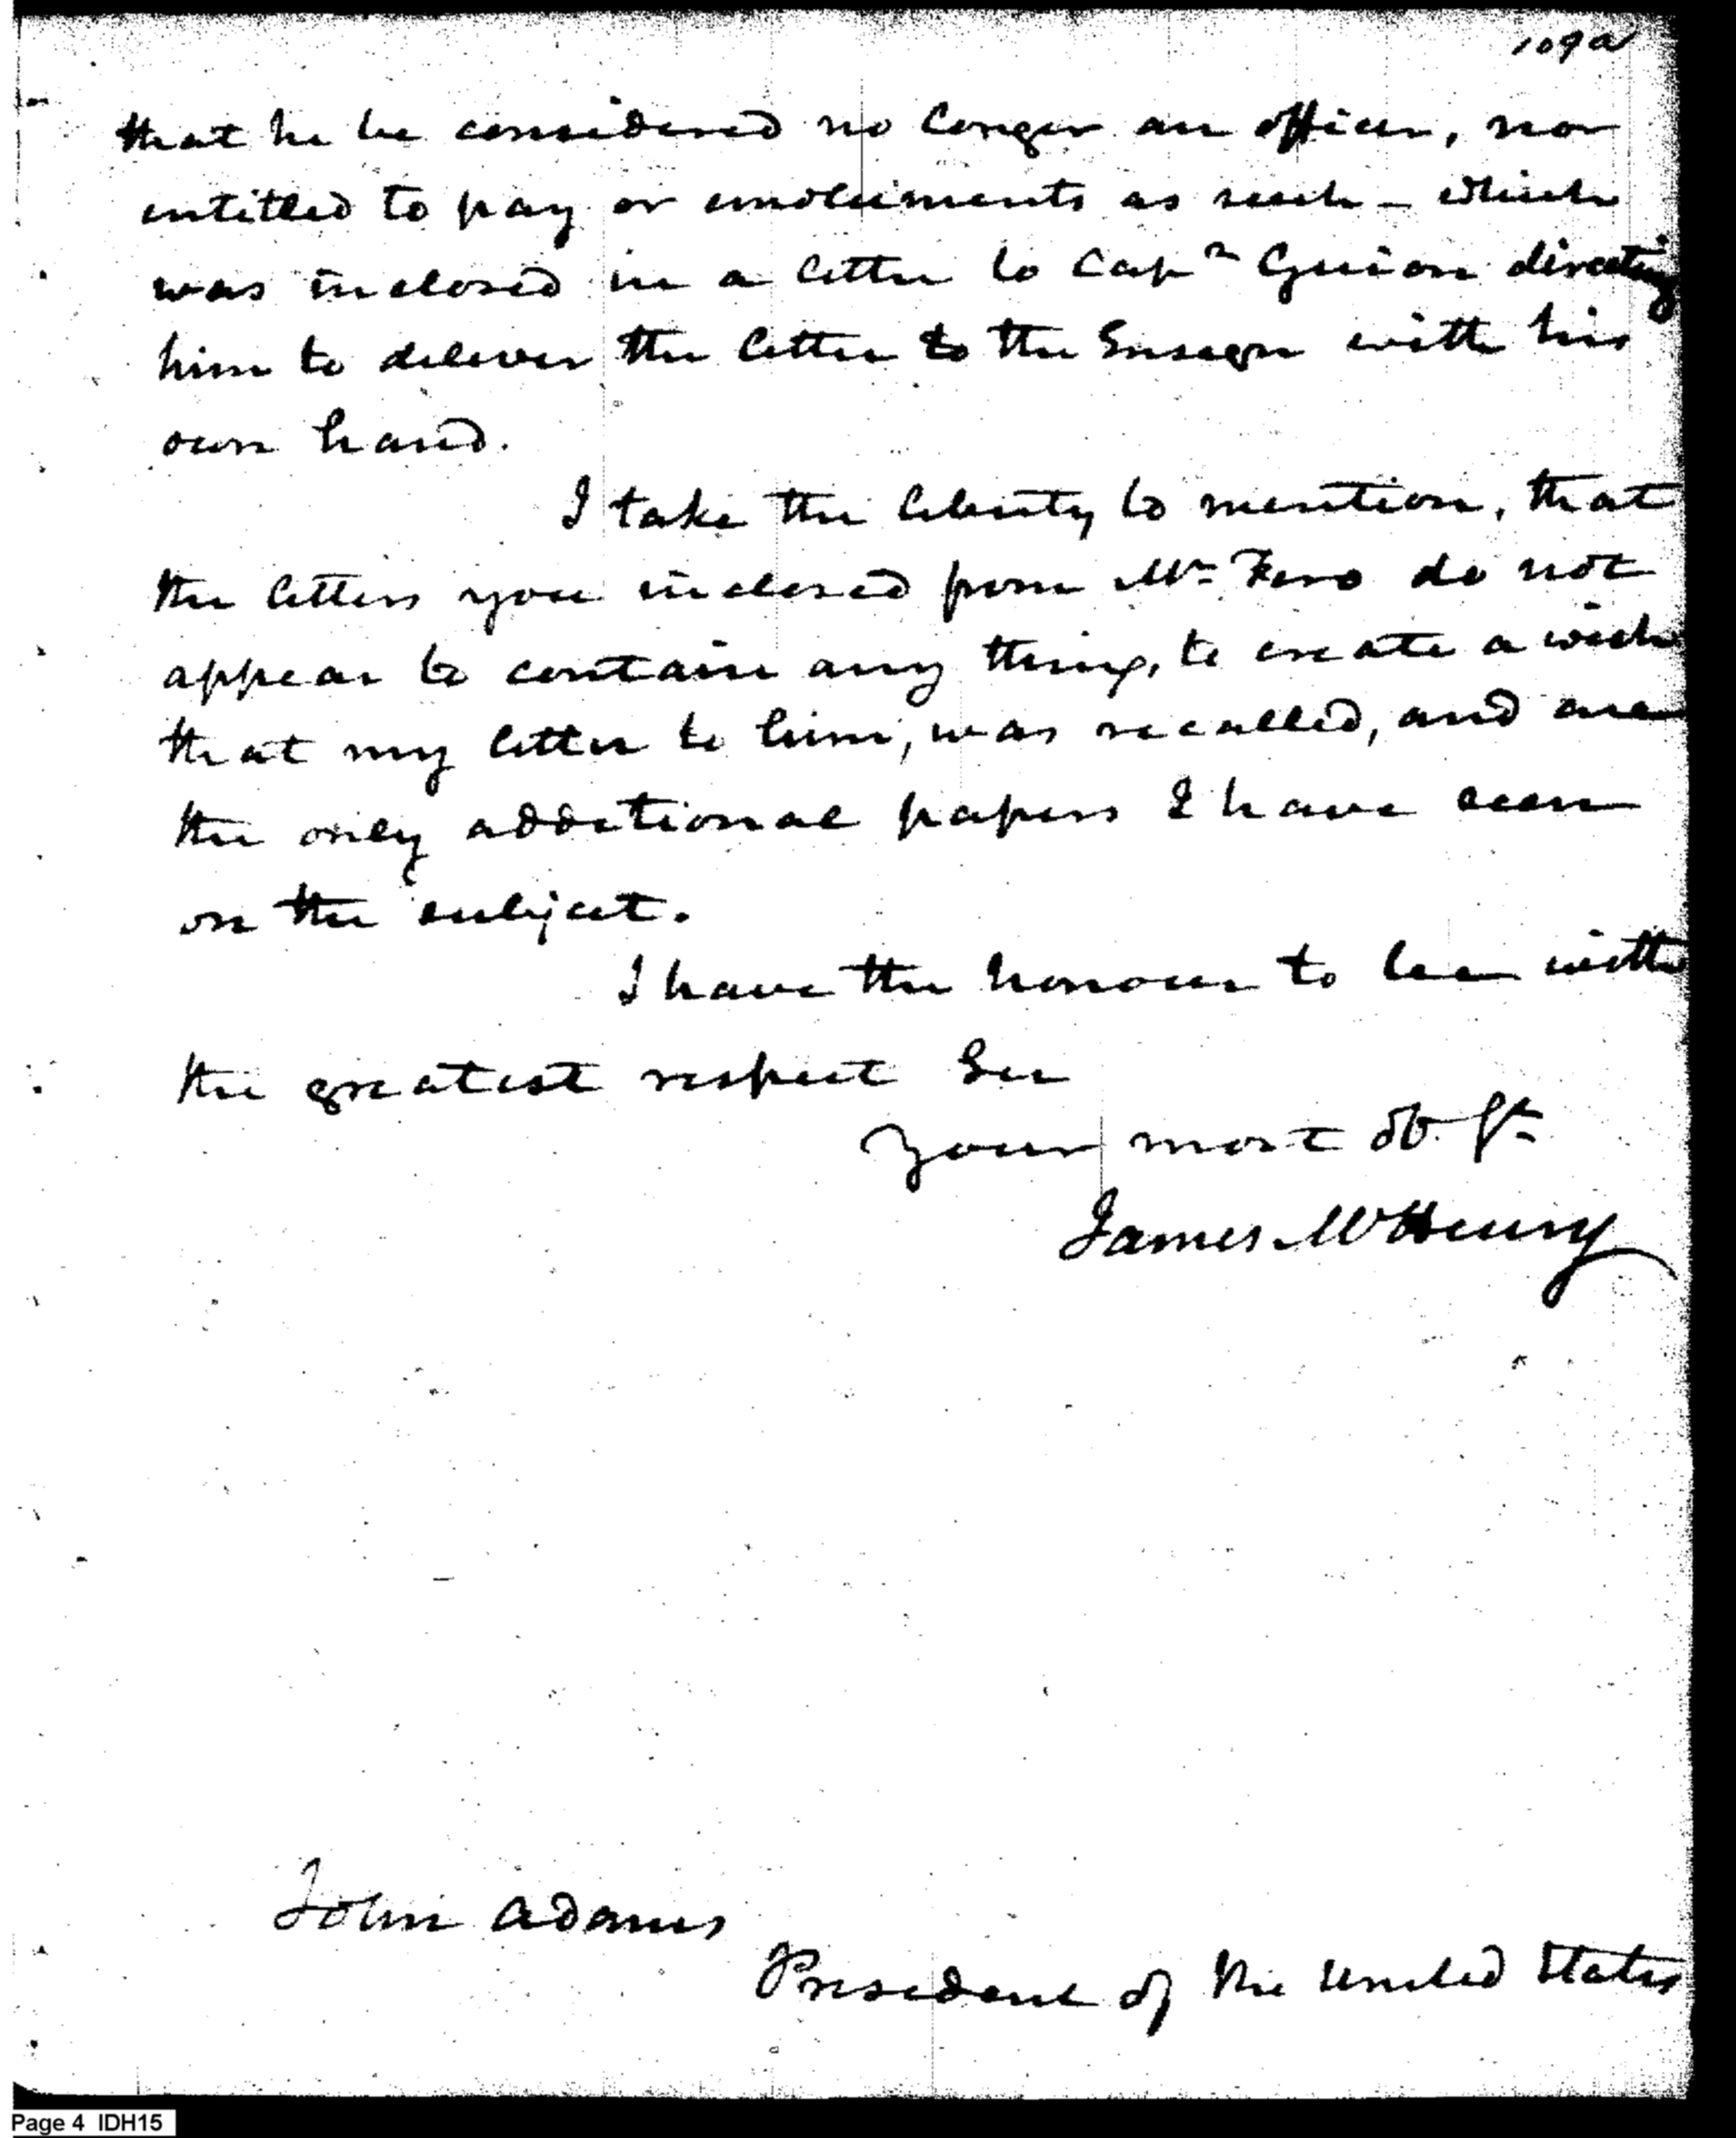 109a
that he be considered no longer an officer, nor
entitled to pay or emoluments as such - which
was inclosed in a letter to Capn Guion directing
him to deliver the letter to the Ensign with his
own hand.
I take the liberty to mention, that
the letters you inclosed from Mr. Fero do not
appear to contain any thing, to create a wish
that my letter to him, was recalled, and are
the only additional papers I have seen
on the subject.
I have the honour to be with
the greatest respect Sir
Your most Ob. St.
James McHenry
John Adams
President of the United States
Page 4 IDH15